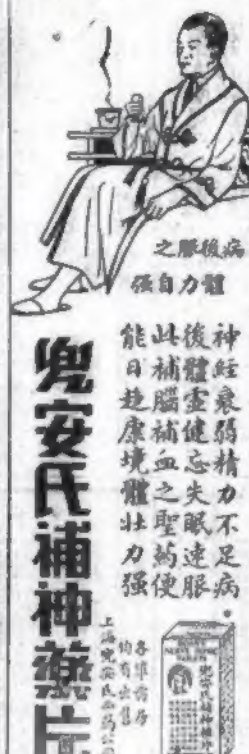 病後服之
體力自强
神經衰弱精力不足病
後體虛健忘失眠速服
此補腦補血之聖药便
能日趋康境體壯力强
兜安氏補神藥片
各埠药房
均有出售
上海兜安氏西药公